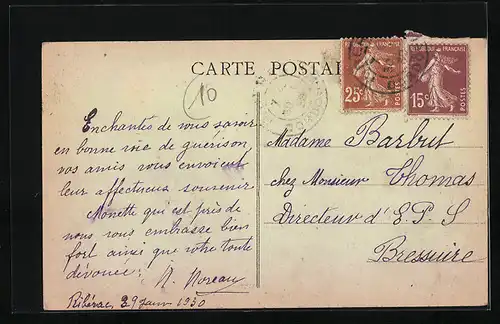 CARTE POSTALE
10
25c
15c
REPUBLIQUE FRANÇAISE
POSTES
POSTES
Enchantés de vous savoir
en bonne voie de guérison,
vos amis vous envoient
leur affectueux souvenir
Monette qui est près de
nous vous embrasse bien
fort ainsi que votre toute
dévouée:
M. Moreau
Ribérac, 29 janv 1930
Madame Barbut
chez Monsieur Thomas
Directeur d'E.P.S
Bressuire